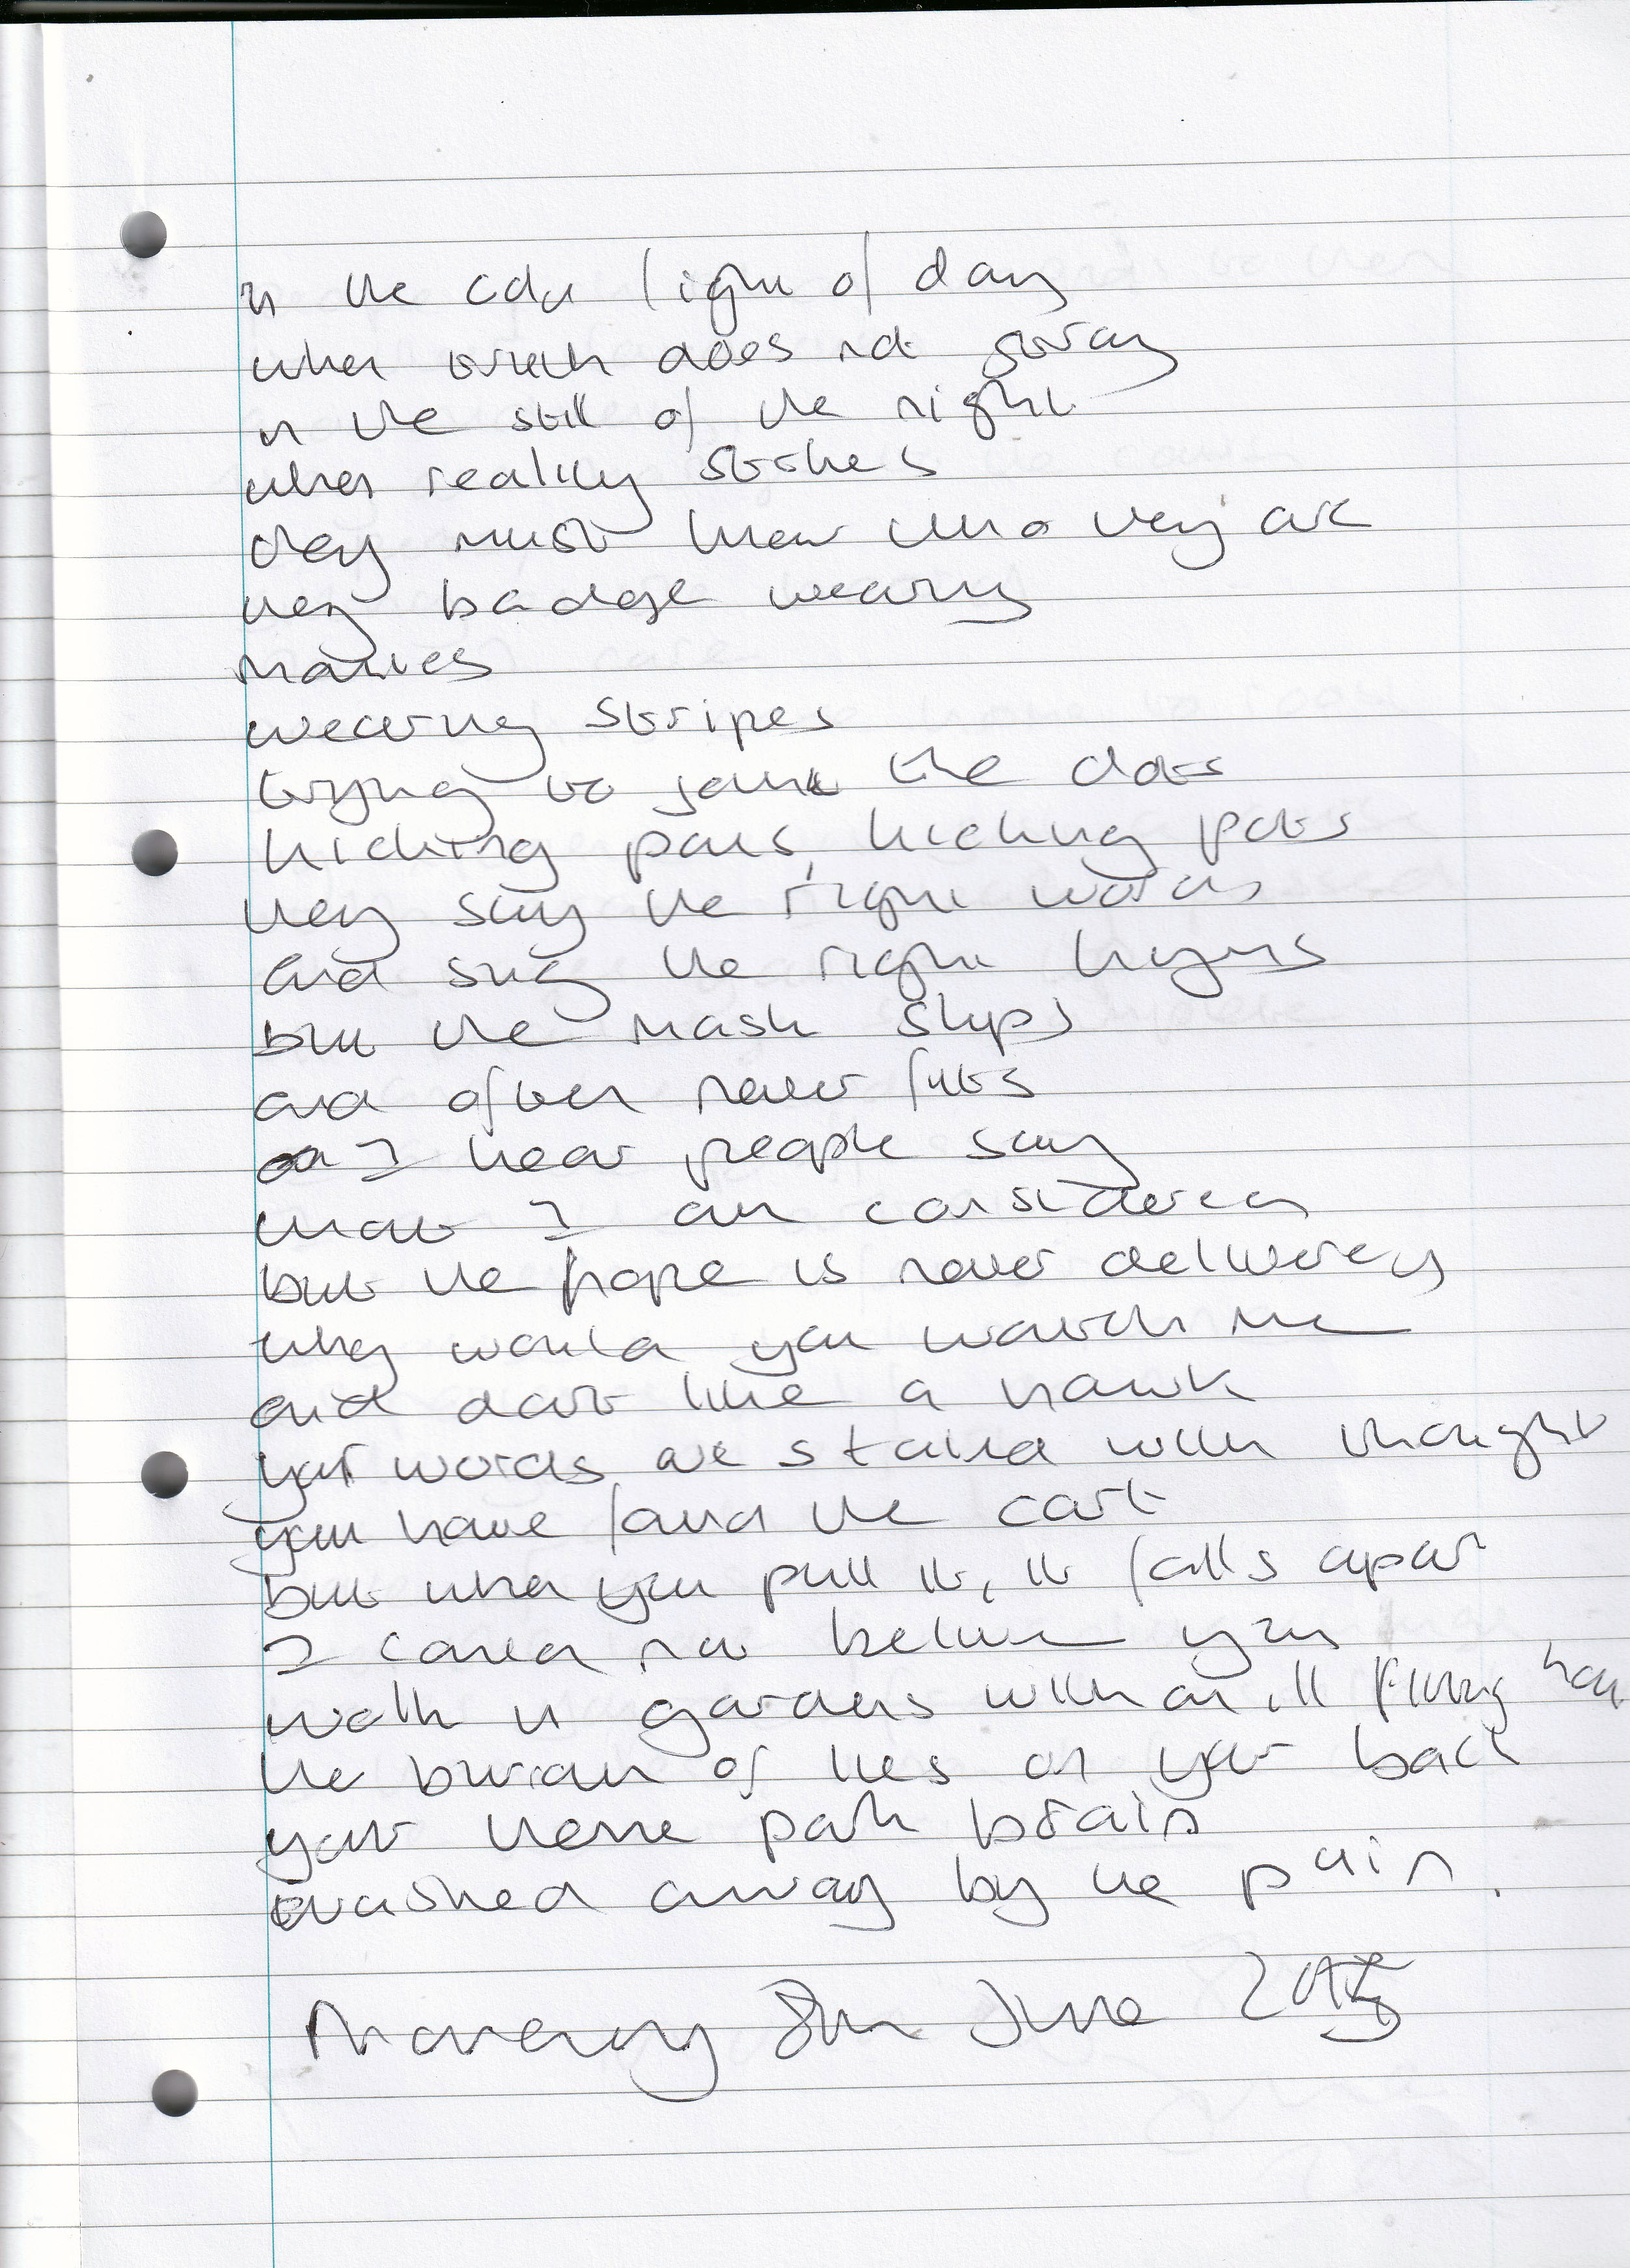 in the cold light of day
when truth does not stray
in the still of the night
when reality strikes
they must know who they are
they badge wearing
wearing stripes
trying to the dots
hiding hiding pots
they say the right words
and sing the right hymns
but the mask slips
and often never fits
I hear people say
that I am considered
but the hope is never delivered
why would you watch me
and dart like a hawk
your words are stained with thought
you have found the cart
but when you pull it, it falls apart
I cannot believe you
walk in gardens with an ill fitting
the burden of lies on your back
your brain
washed away by the pain.
Monday 8th June 2015